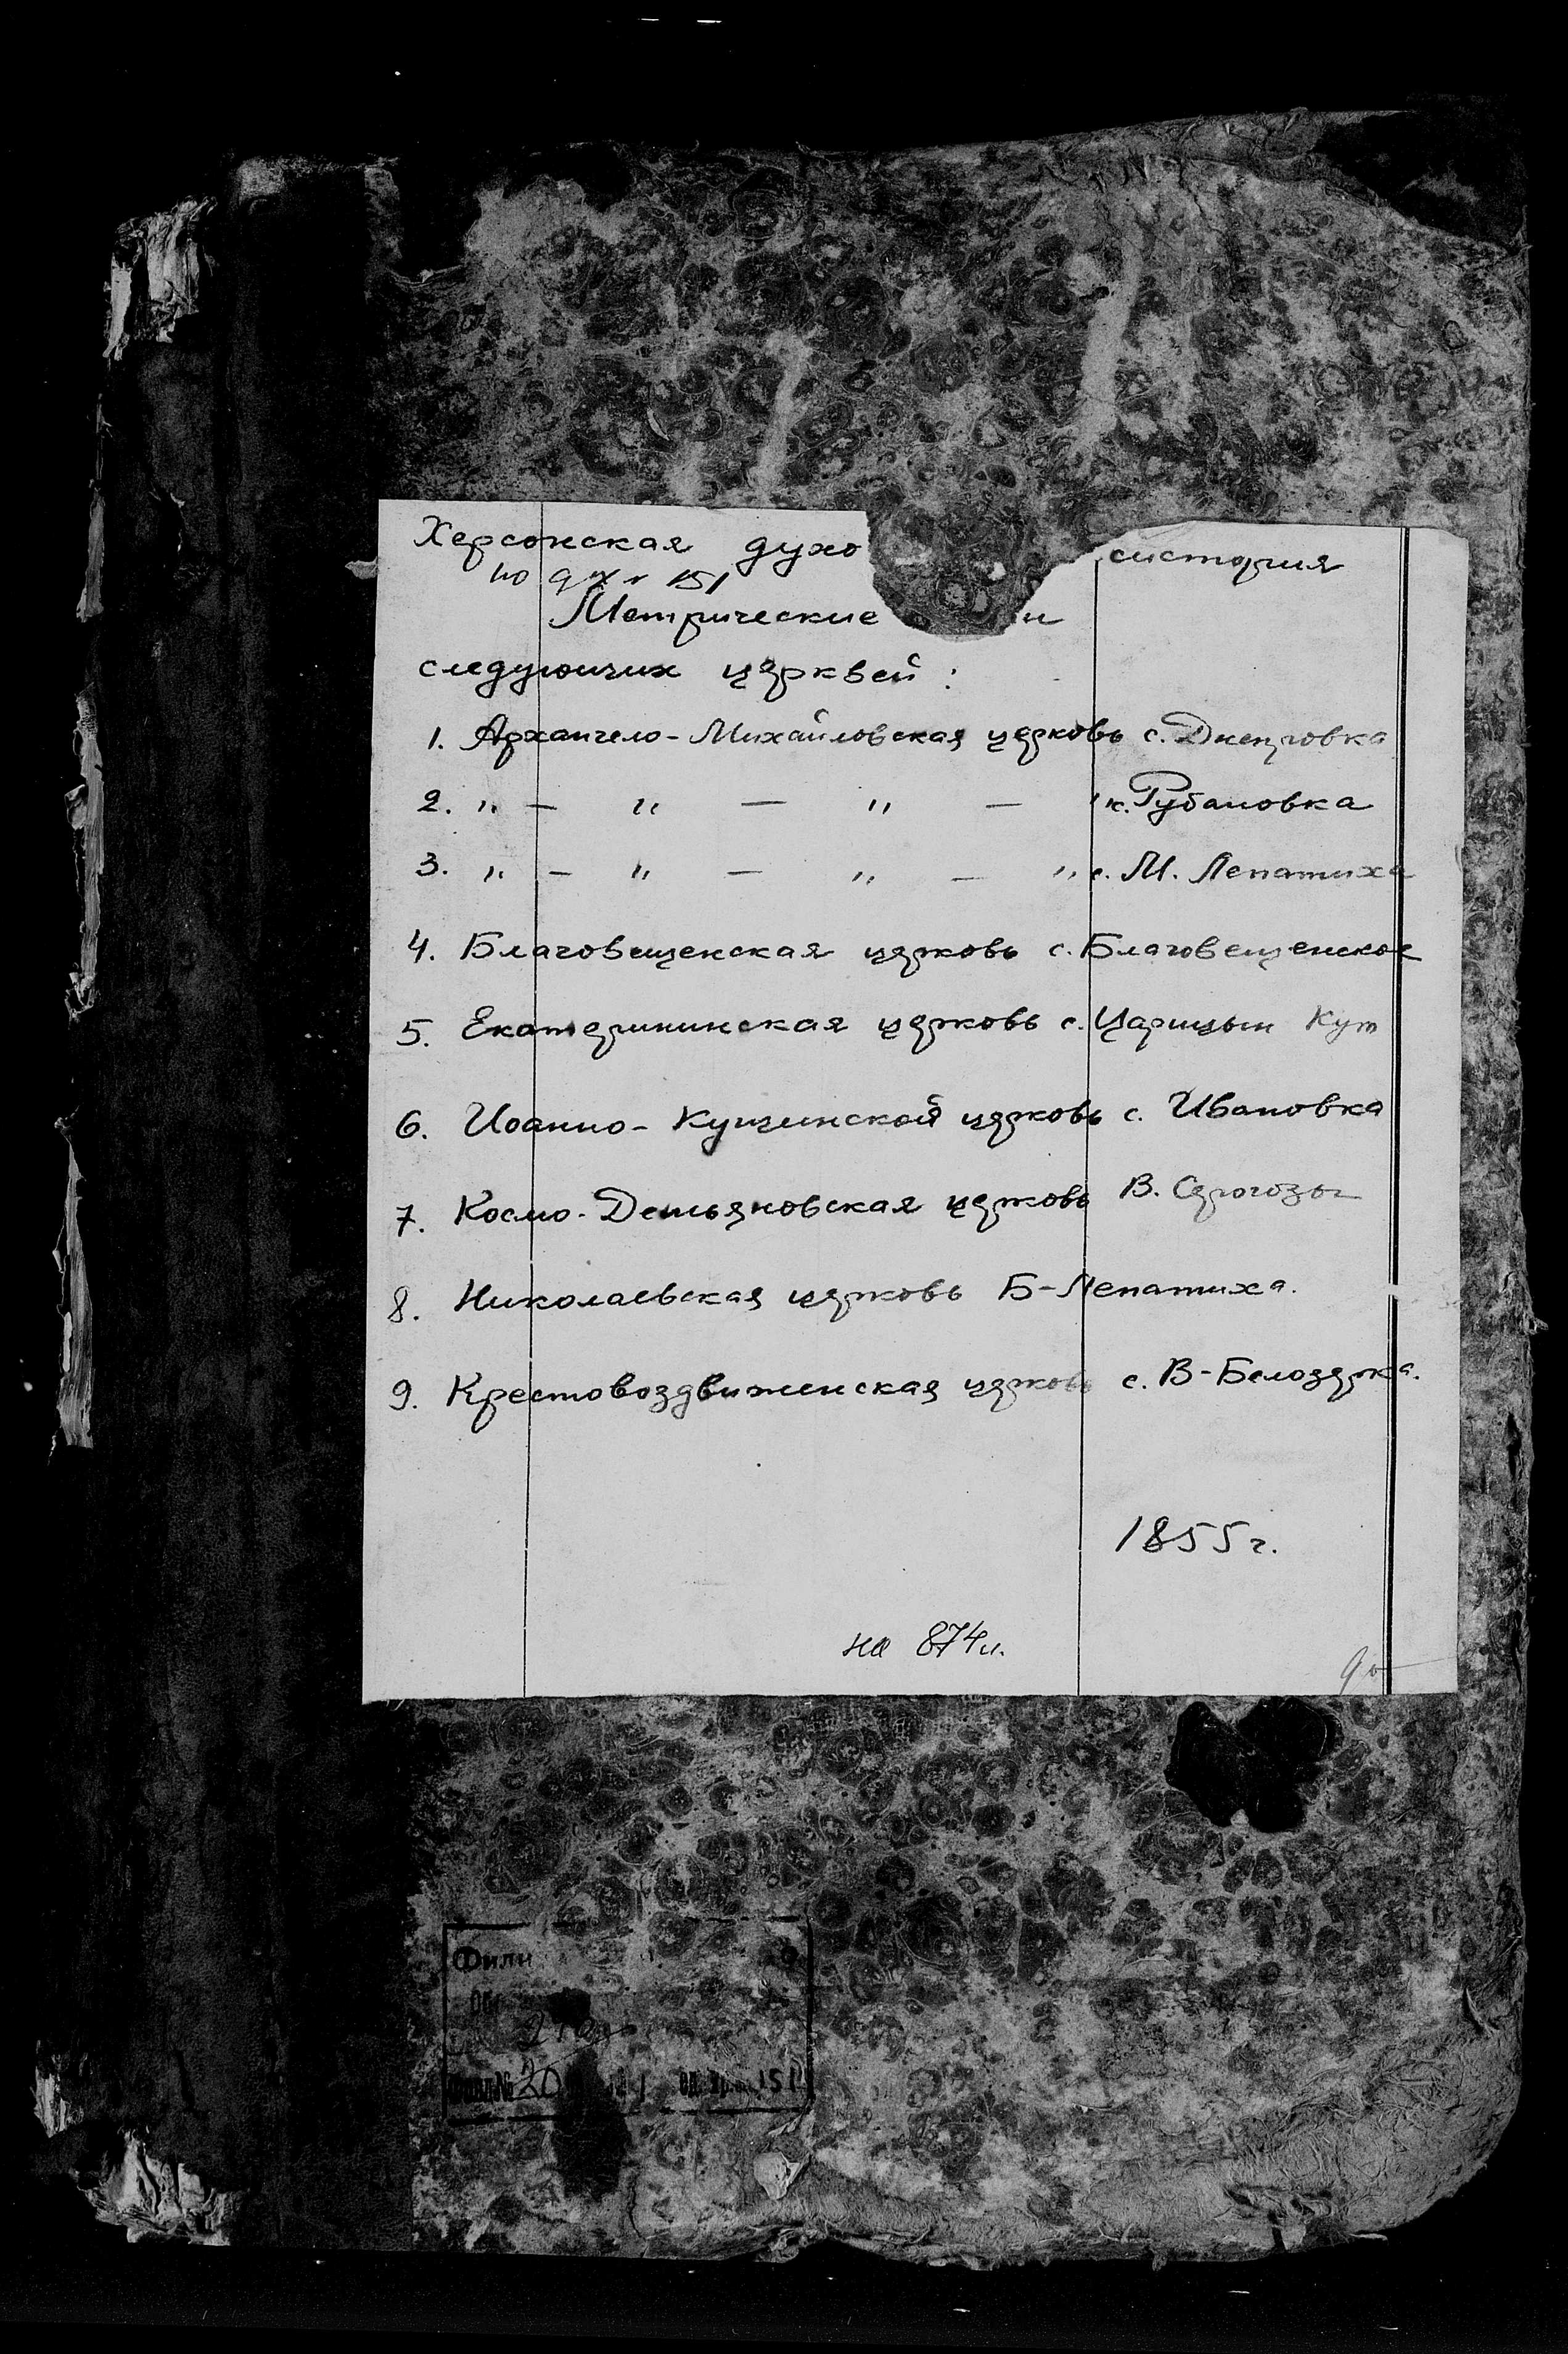 Херсонская духо систория
Метрические и
следующих церквей:
1. Архангело-Михайловская церковь с. Днепровка
2. " — " — " — " с. Рубановка
3. " — " — " — " с. М. Лепатиха
4. Благовещенская церковь с. Благовещенское
5. Екатерининская церковь с. Царицын Кут
6. Иоанно-Кущинской церковь с. Ивановка
7. Космо-Демьяновская церковь В. Серогозы
8. Николаевская церковь Б-Лепатиха.
9. Крестовоздвиженская церковь с. В-Белозерка.
1855 г.
на 874 л.
Фили
20 1 ед. хр. 151